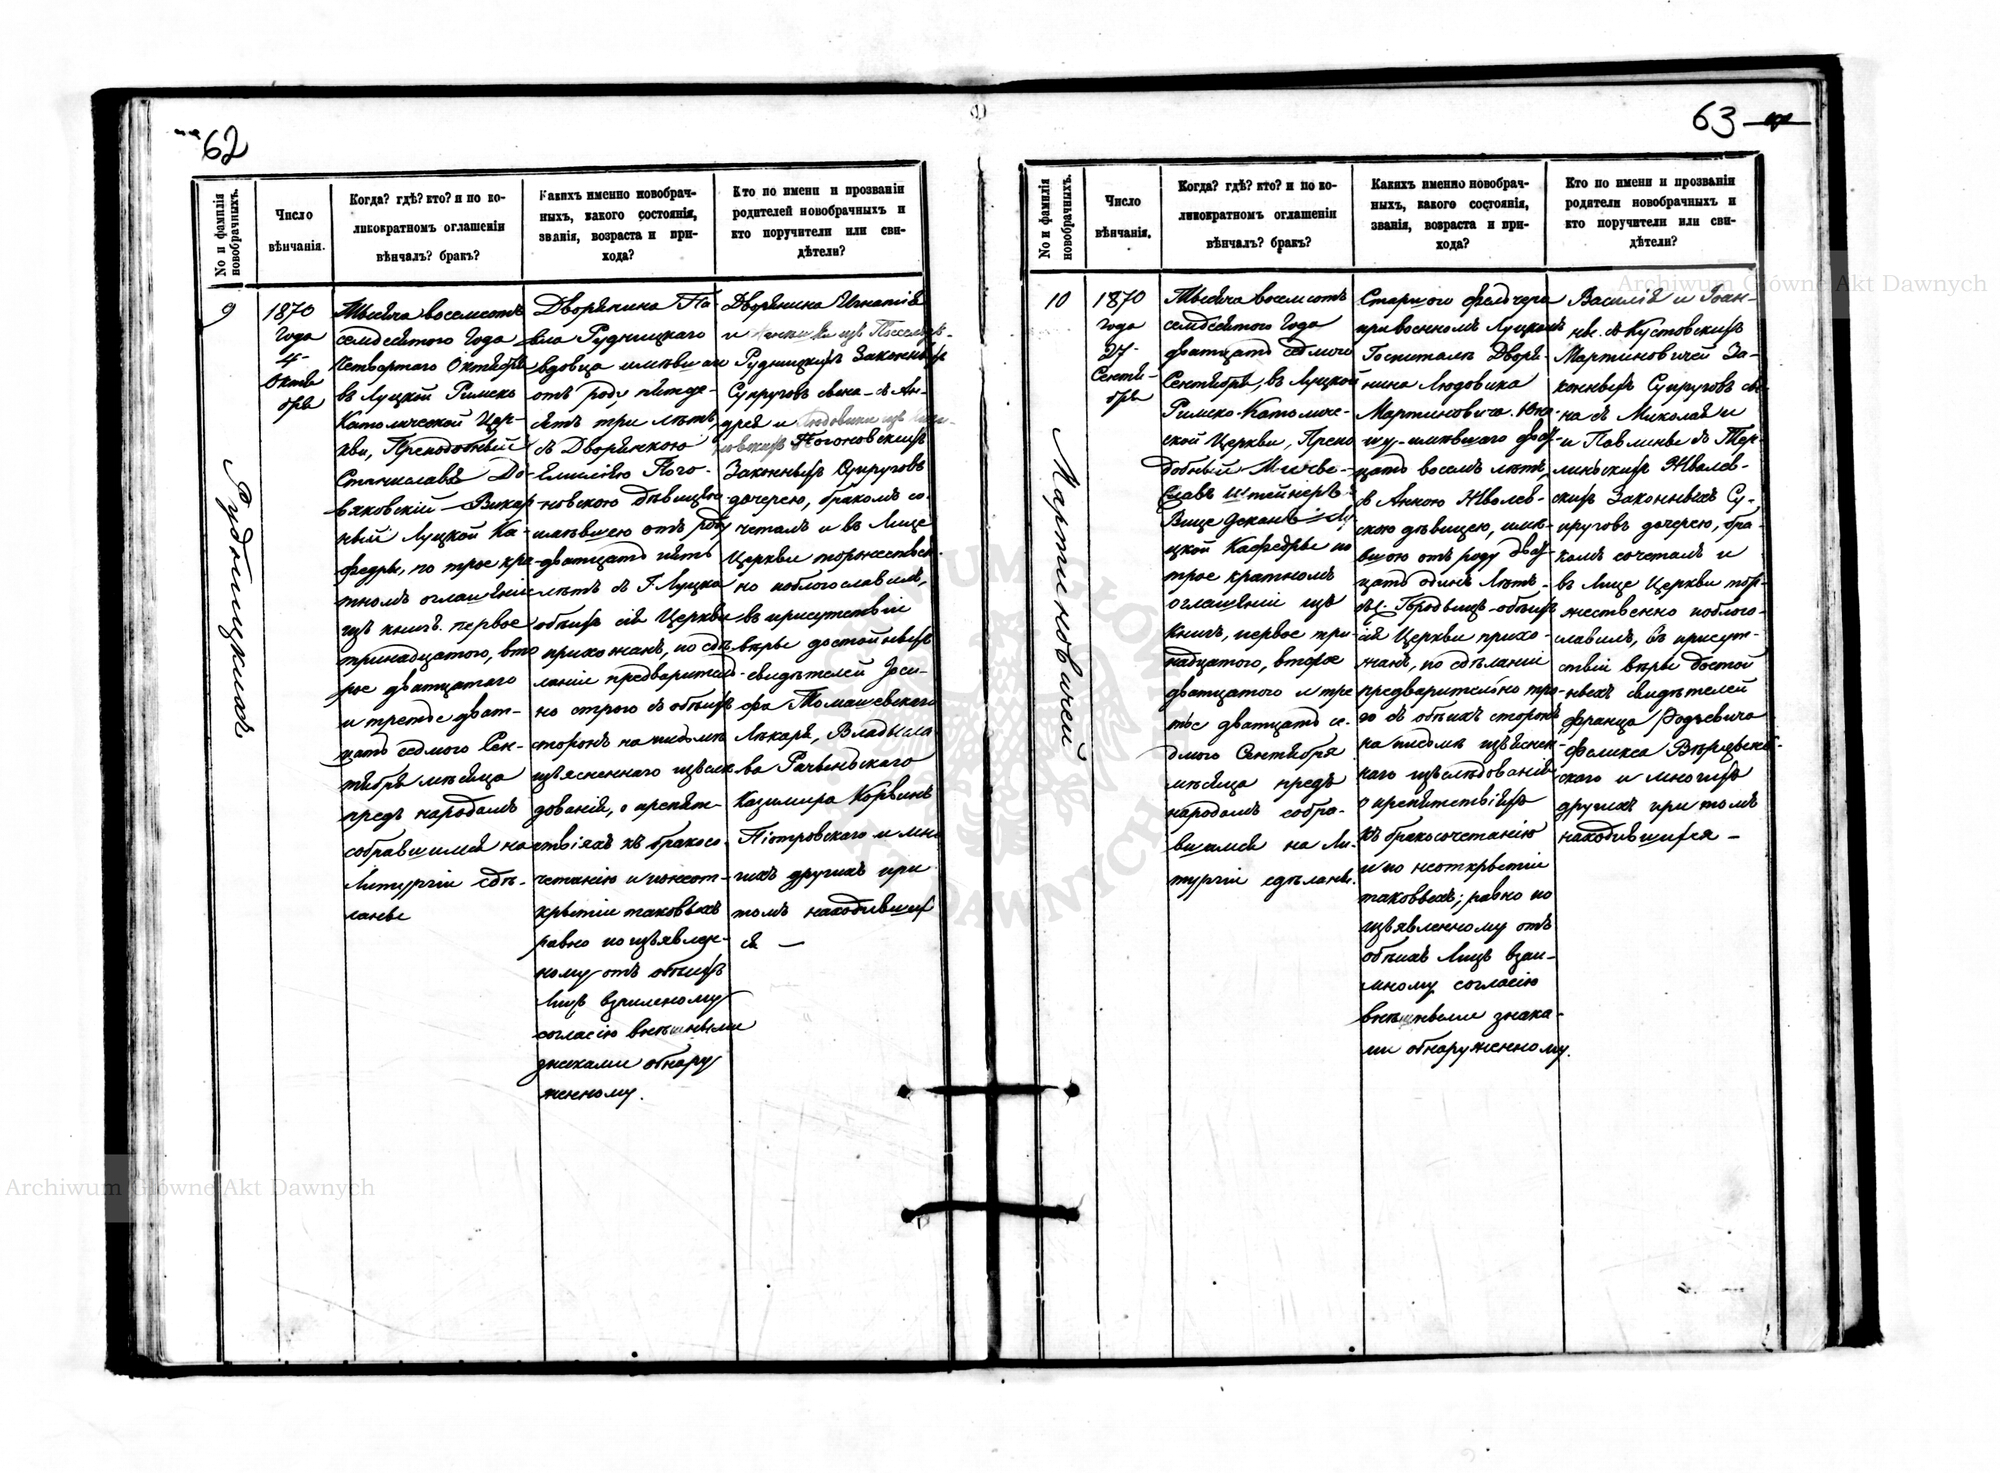 62
No и фамилія новобрачныхъ.
Число вѣнчанія.
Когда? гдѣ? кто? и по ко-
ликократномъ оглашеніи
вѣнчалъ? бракъ?
Какихъ именно новобрач-
ныхъ, какого состоянія,
званія, возраста и при-
хода?
Кто по имени и прозванію
родителей новобрачныхъ и
кто поручители или сви-
дѣтели?
9
Рудницкихъ
1870
Года
4
Октя
бря
Тысяча восемсотъ
семдесятого Года
Четвертаго Октября
въ Луцкой Римско
Католической Цер-
кви, Преподобный
Станиславъ
Викар
ный Луцкой Ка-
федры, по трое кра-
тномъ оглашеніи
изъ книгъ. первое
тринадцатого, вто
рое дватцатого
и третое дват-
цать седмого Сен-
тября мѣсяца
предъ народомъ
собравшимся на
Литургіи сдѣ-
ланы
Дворянина Па
вла Рудницкаго
вдовца имѣвшаго
отъ роду пятде-
сятъ три лѣтъ,
съ Дворянкою
Емиліею Пого-
новскою дѣвицею
имѣвшею отъ роду
дватцать пять
лѣтъ съ Г. Луцка
обоихъ сія Церкви
прихожанъ, по сдѣ
ланіи предварительно
но строго съ обоихъ
сторонъ на письмѣ
изъясненного изслѣ
дованія, о препят-
ствіяхъ къ бракосо-
четанію и по неот-
крытіи таковыхъ
равно по изъявлен-
ному отъ обоихъ
Лицъ взаимному
согласію внѣшными
знаками обнару
женному.
Дворянина Игнатія
и
Рудницкихъ Законныхъ
Супруговъ сына съ Ан-
дрея и Людовики изъ
Погоновскихъ
Законныхъ Супруговъ
дочерею, бракомъ со-
четалъ и въ Лице
Церкви торжествен
но поблогославилъ,
въ присутствіи
вѣры достойныхъ
свидѣтелей Іоси-
фа Томашевского
Лѣкаря, Владысла
ва
Казимира Корвинъ
Піотровскаго и мно
гихъ другихъ при
томъ находившихъ
ся —
63
No и фамилія новобрачныхъ.
Число вѣнчанія.
Когда? гдѣ? кто? и по ко-
ликократномъ оглашеніи
вѣнчалъ? бракъ?
Какихъ именно новобрач-
ныхъ, какого состоянія,
званія, возраста и при-
хода?
Кто по имени и прозванія
родители новобрачныхъ и
кто поручители или сви-
дѣтели?
10
Мартиновичей
1870
года
27
Сентя-
бря
Тысяча восемсотъ
семдесятого Года
дватцать седмого
Сентября, въ Луцкой
Римско-Католиче-
ской Церкви, Препо
добный Мечи-
славъ Штейнеръ
Вице Деканъ Лу
цкой Кафедры по
трое кратномъ
оглашеніи изъ
книгъ, первое три
надцатого, второе
дватцатого и тре
тое дватцать се-
дмого Сентября
мѣсяца предъ
народомъ собра-
вшимся на Ли-
тургіи сдѣланы.
Старшого фелчера
при военномъ Луцкомъ
Госпиталѣ Дворя-
нина Людовика
Мартиновича Юно
шу имѣвшаго дват
цать восемъ лѣтъ,
съ Анною Жвалев-
скою дѣвицею, имѣ-
вшою отъ роду дват
цать одинъ Лѣтъ-
обоихъ
сія Церкви прихо-
жанъ, по сдѣланіи
предварительно стро-
го съ обоихъ сторонъ
на письмѣ изъяснен-
ного изслѣдованія
о препятствіяхъ
къ бракосочетанію
и по неоткрытіи
таковыхъ; равно по
изъявленному отъ
обоихъ Лицъ взаи-
мному согласію
внѣшными знака-
ми обнаруженному.
Василія и Іоан-
ны съ Кустовскихъ
Мартиновичей За-
конныхъ Супруговъ сы-
на съ Миколая и
и Павлины съ Тер-
линскихъ Жвалев-
скихъ Законныхъ Су-
пруговъ дочерею, бра-
комъ сочеталъ и
въ Лице Церкви тор-
жественно поблого-
славилъ, въ присут-
ствіи вѣры достой
ныхъ свидѣтелей
Франца Родзевича
Феликса
ского и многихъ
другихъ при томъ
находившихся —
Archiwum Główne Akt Dawnych
Archiwum Główne Akt Dawnych